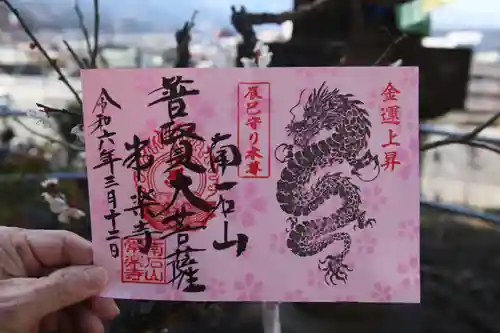 金運上昇
辰巳守り本尊
南石山
普賢大菩薩
常楽寺
令和六年三月十二日
南石山
常楽寺